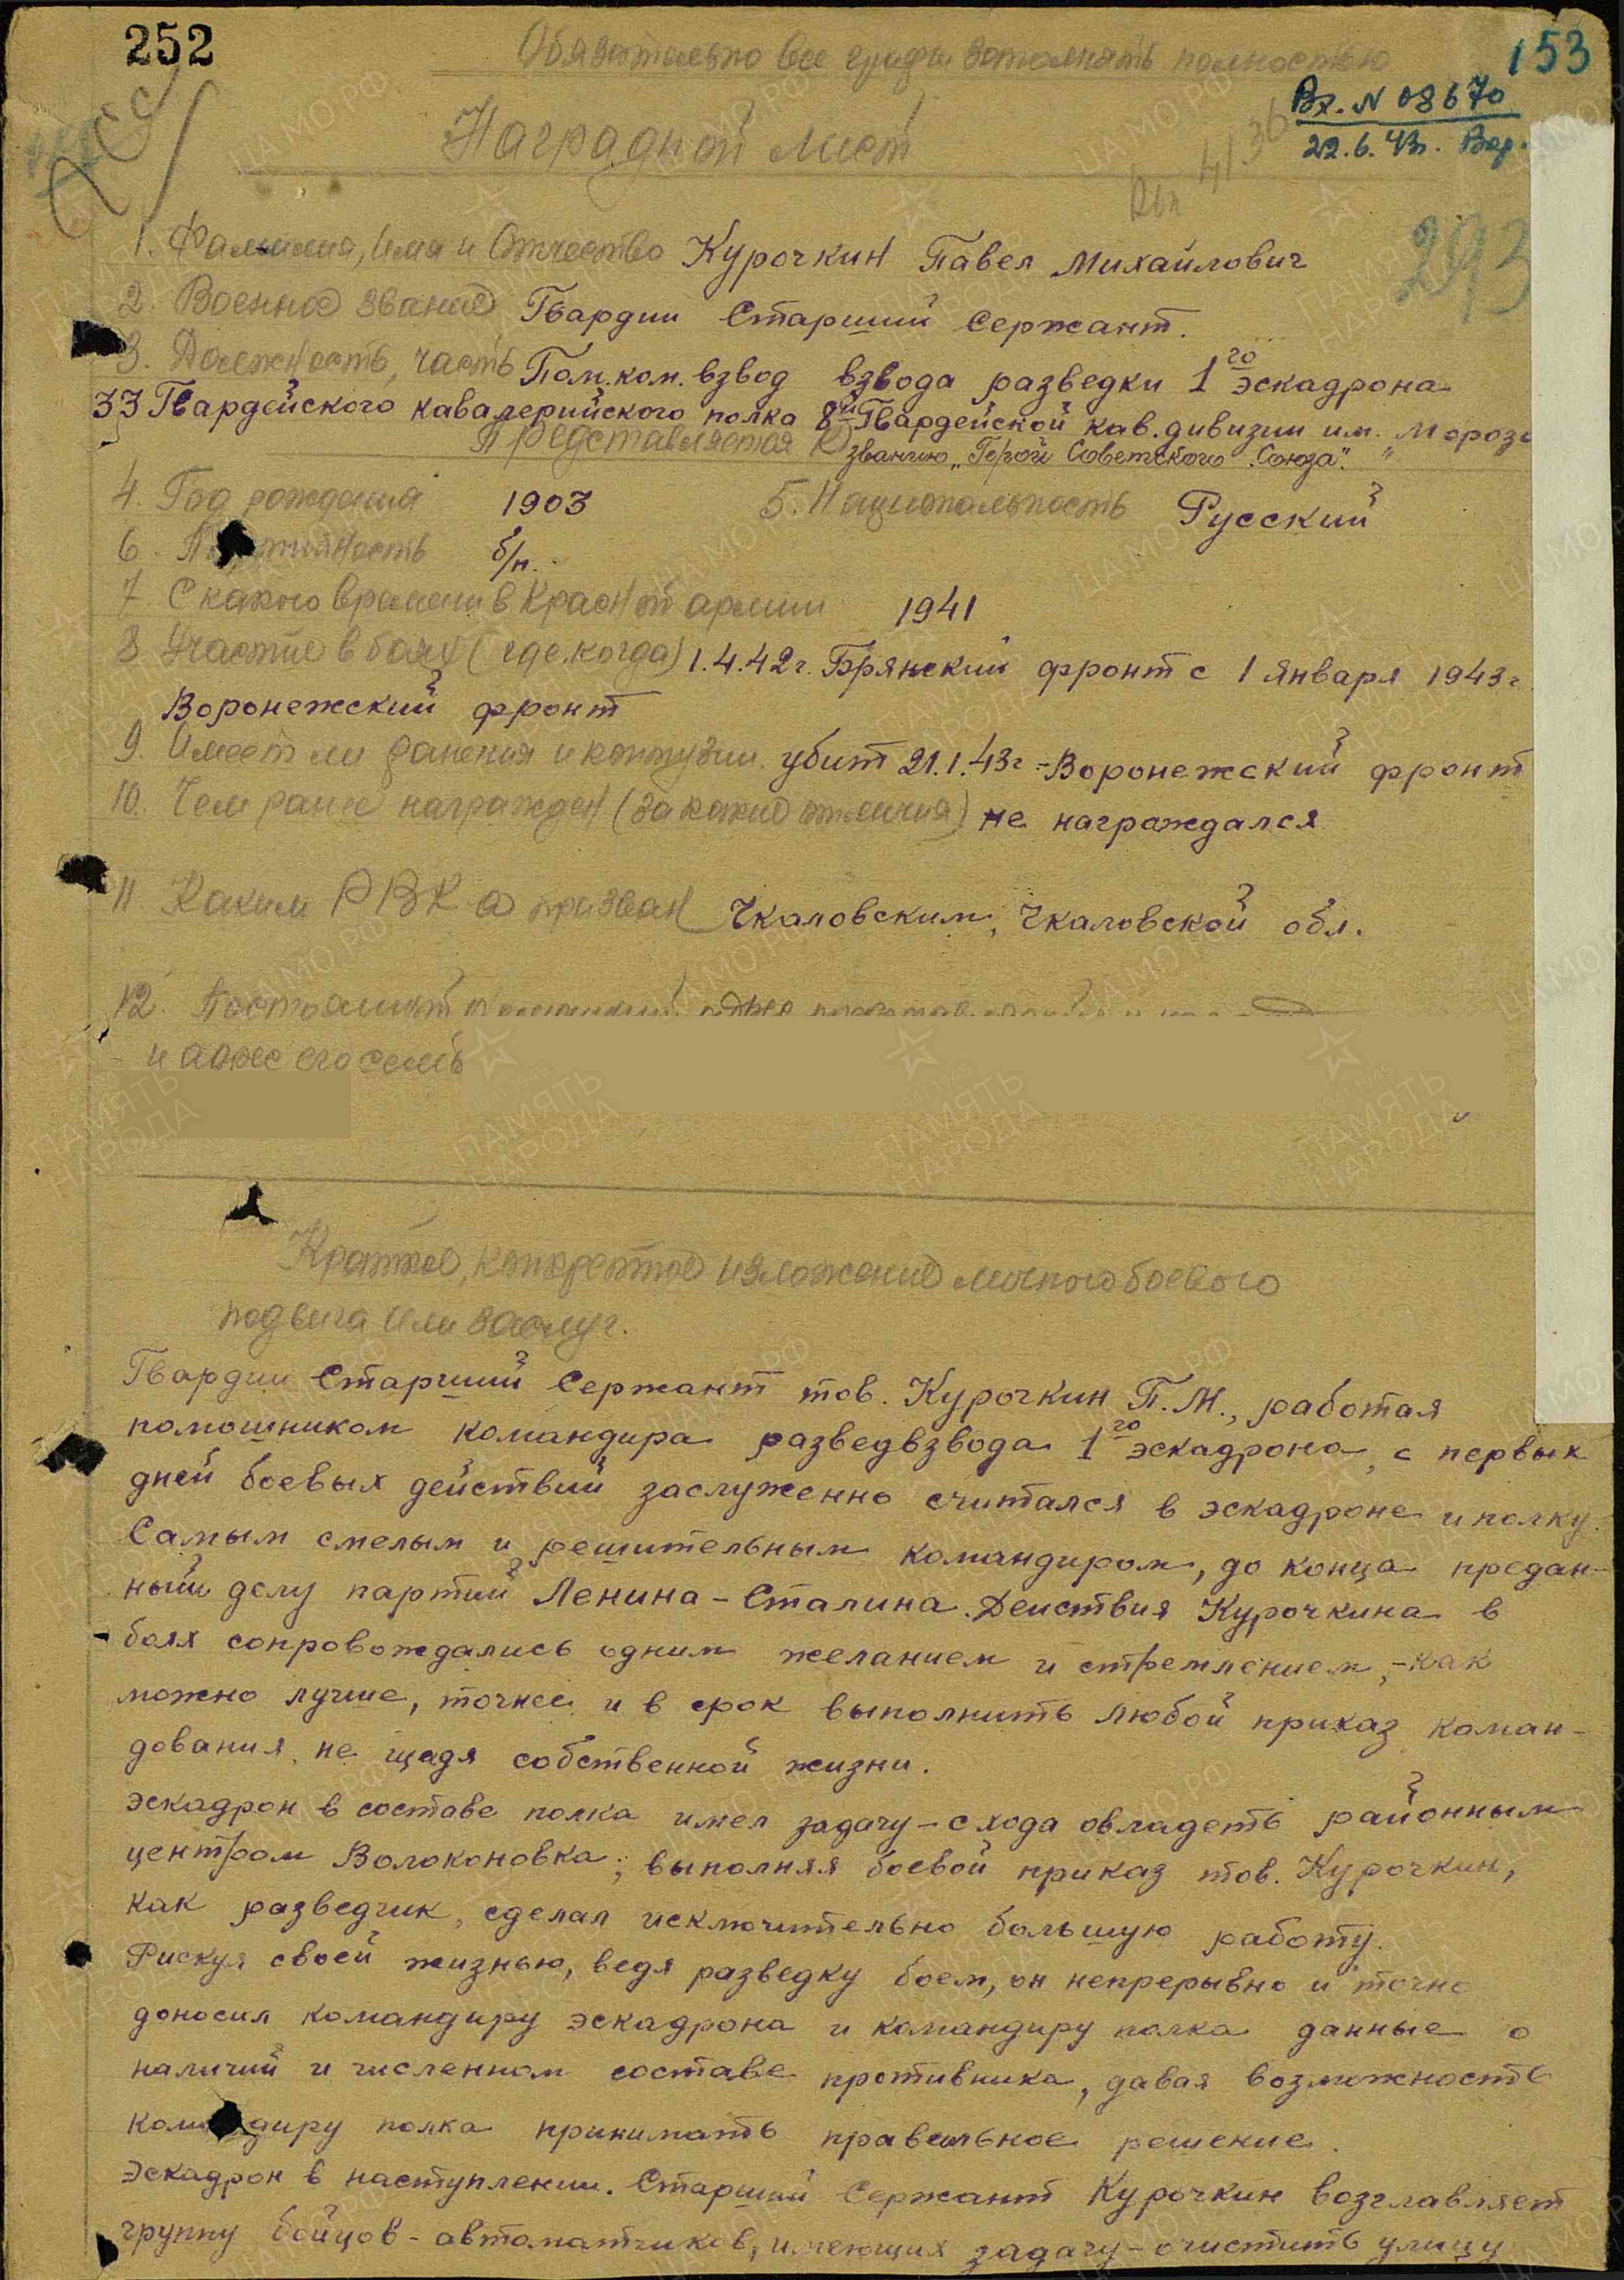 252
153
Обязательно все графы заполнять полностью
Вх. N 08670
22.6.43г. Вор.
4136
Наградной лист
293
1. Фамилия, Имя и Отчество Курочкин Павел Михайлович
2. Военное звание Гвардии Старший Сержант.
3. Должность, часть Пом. ком. взвод взвода разведки 1го эскадрона
33 Гвардейского кавалерийского полка 8й Гвардейской кав. дивизии им. Мороз
Представляется к званию „Герой Советского Союза".
4. Год рождения 1903 5. Национальность Русский
6. Партийность б/п.
7. С какого времени в Красной армии 1941
8. Участие в боях (где, когда) 1.4.42г. Брянский фронт с 1 января 1943г
Воронежский фронт
9. Имеет ли ранения и контузии. убит 21.1.43г - Воронежский фронт
10. Чем ранее награжден (за какие отличия) не награждался
11 Каким РВК-ом призван Чкаловским, Чкаловской обл.
12. Постоянный домашний адрес
и адрес его семьи
Краткое, конкретное изложение личного боевого
подвига или заслуг.
Гвардии Старший Сержант тов. Курочкин П.М., работая
помошником командира разведвзвода 1го эскадрона, с первых
дней боевых действий заслуженно считался в эскадроне и полку
Самым смелым и решительным командиром, до конца предан-
ный делу партий Ленина - Сталина. Действия Курочкина в
боях сопровождались одним желанием и стремлением, - как
можно лучше, точнее и в срок выполнить любой приказ коман-
дования, не щадя собственной жизни.
Эскадрон в составе полка имел задачу - с хода овладеть районным
центром Волоконовка; выполняя боевой приказ тов. Курочкин,
как разведчик, сделал исключительно большую работу.
Рискуя своей жизнью, ведя разведку боем, он непрерывно и точно
доносил командиру эскадрона и командиру полка данные о
наличий и численном составе противника, давая возможность
командиру полка принимать правильное решение.
Эскадрон в наступлении. Старший Сержант Курочкин возглавляет
группу бойцов - автоматчиков, имеющих задачу - очистить улицу
ПАМЯТЬ НАРОДА
ЦАМО.РФ